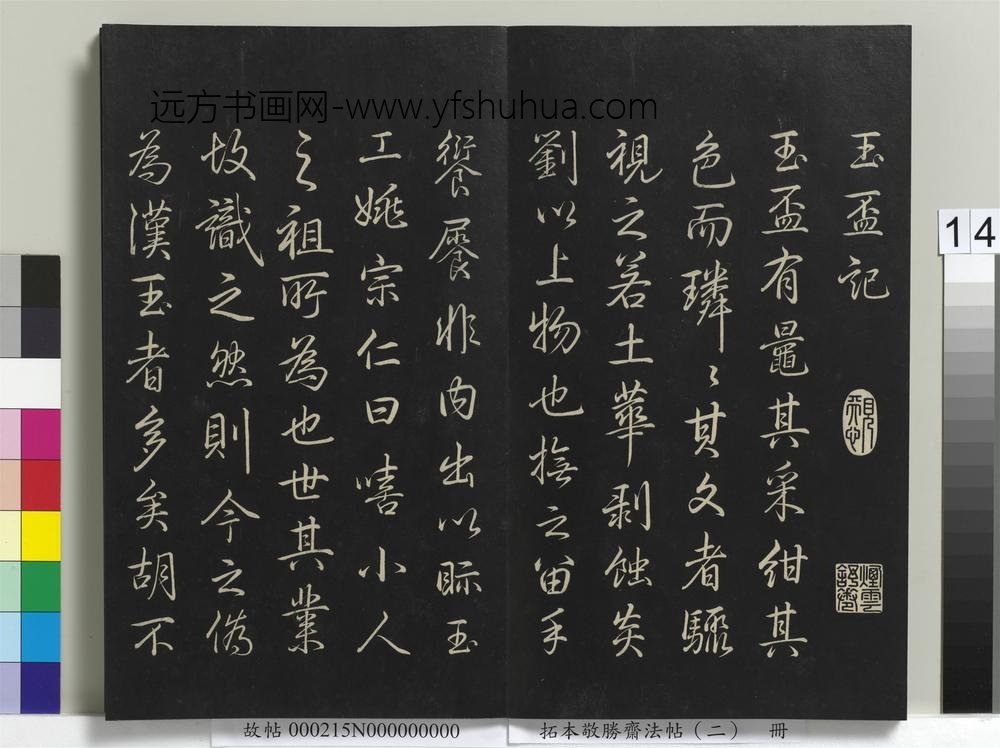 远方书画网-www.yfshuhua.com
玉盃記
玉盃有其采紺其
色而璘〻其文者驟
視之若土華剥蝕炎
劉以上物也撫之留手
非内出以眎玉
工姚宗仁曰嘻小人
之祖所為也世其業
故識之然則今之偽
為漢玉者多矣胡不
14
故帖 000215N000000000
拓本敬勝齋法帖（二） 冊